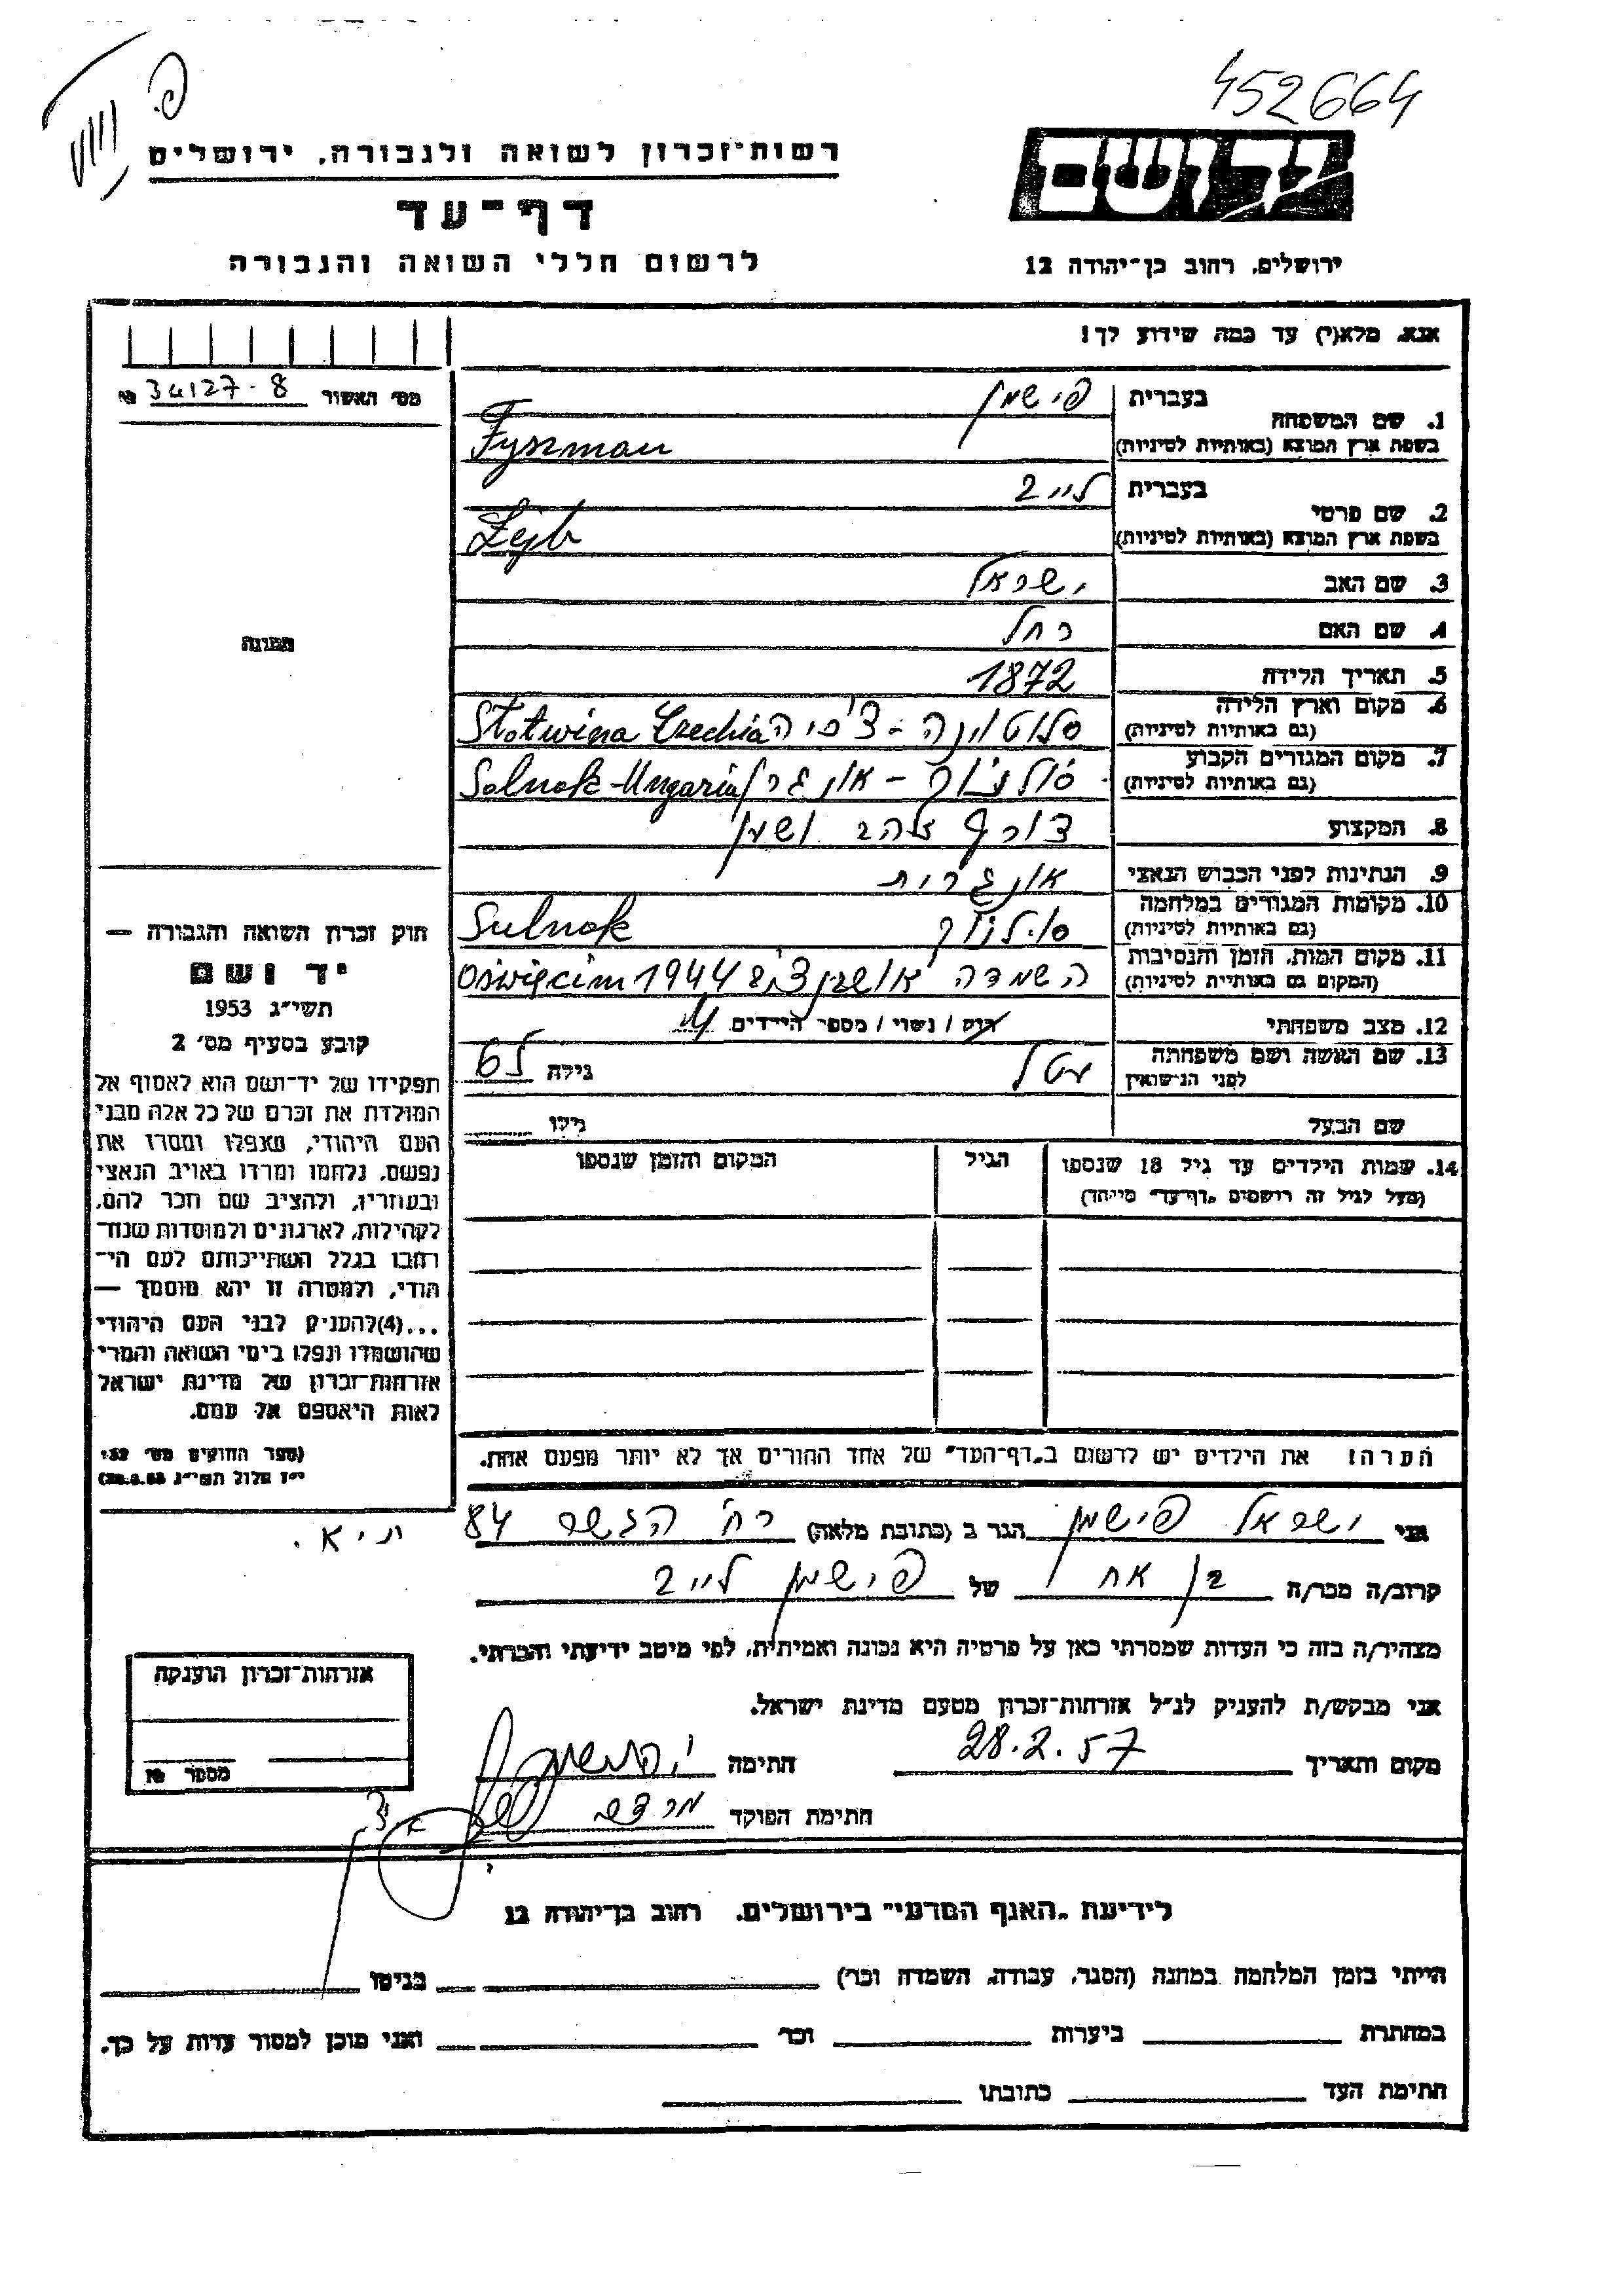 452664
פ.
יד ושם
ירושלים, רחוב בן־יהודה 12
רשות־זכרון לשואה ולגבורה, ירושלים
דף־עד
לרשום חללי השואה והגבורה
אנא, מלא(י) עד כמה שידוע לך!
מס׳ האשור 34127-8 №
1. שם המשפחה
בעברית פישמן
בשפת ארץ המוצא (באותיות לטיניות) Fyszman
2. שם פרטי
בעברית לייב
בשפת ארץ המוצא (באותיות לטיניות) Lejb
3. שם האב ישראל
4. שם האם רחל
5. תאריך הלידה 1872
6. מקום וארץ הלידה סלוטוינה - צ'כיה Stotwina Czechia
(גם באותיות לטיניות)
7. מקום המגורים הקבוע סולנוק - אונגרן Solnok-Ungaria
(גם באותיות לטיניות)
8. המקצוע צורף זהב ושען
9. הנתינות לפני הכבוש הנאצי אונגרית
10. מקומות המגורים במלחמה סולנוק Sulnok
(גם באותיות לטיניות)
11. מקום המות, הזמן והנסיבות השמדה אושוינצ'ים Oświęcim 1944
(המקום גם באותיות לטיניות)
12. מצב משפחתי רווק / נשוי / מספר הילדים 4
13. שם האשה ושם משפחתה עטל גילה 65
לפני הנישואין
שם הבעל גילו
14. שמות הילדים עד גיל 18 שנספו הגיל המקום והזמן שנספו
(מעל לגיל זה רושמים „דף־עד״ מיוחד)
הערה! את הילדים יש לרשום ב„דף־העד״ של אחד ההורים אך לא יותר מפעם אחת.
תמונה
חוק זכרון השואה והגבורה —
יד ושם
תשי״ג 1953
קובע בסעיף מס׳ 2
תפקידו של יד־ושם הוא לאסוף אל
המולדת את זכרם של כל אלה מבני
העם היהודי, שנפלו ומסרו את
נפשם, נלחמו ומרדו באויב הנאצי
ובעוזריו, ולהציב שם וזכר להם,
לקהילות, לארגונים ולמוסדות שנח־
רבו בגלל השתייכותם לעם הי־
הודי, ולמטרה זו יהא מוסמך —
...(4)להעניק לבני העם היהודי
שהושמדו ונפלו בימי השואה והמרי
אזרחות־זכרון של מדינת ישראל
לאות היאספם אל עמם.
(ספר החוקים מס׳ 132
י״ז אלול תשי״ג 28.8.53)
אני ישראל פישמן הגר ב (כתובת מלאה) רח' הגשר 84 ת"א.
קרוב/ה מכר/ה בן אח של פישמן לייב
מצהיר/ה בזה כי העדות שמסרתי כאן על פרטיה היא נכונה ואמיתית, לפי מיטב ידיעתי והכרתי.
אני מבקש/ת להעניק לנ״ל אזרחות־זכרון מטעם מדינת ישראל.
מקום ותאריך 28.2.57 חתימה
חתימת הפוקד
אזרחות־זכרון הוענקה
מספר №
לידיעת „האגף המדעי״ בירושלים, רחוב בן־יהודה 12
הייתי בזמן המלחמה במחנה (הסגר, עבודה, השמדה וכו׳) בגיטו
במחתרת ביערות וכו׳ ואני מוכן למסור עדות על כך.
חתימת העד כתובתו